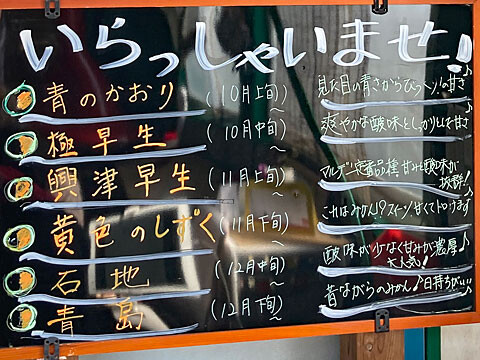 いらっしゃいませ!
青のかおり (10月上旬) 見た目の青さからびっくり!の甘さ♪
極早生 (10月中旬)〜 爽やかな酸味としっかりした甘さ
興津早生 (11月上旬)〜 マルゲン定番品種 甘みと酸味が抜群!
黄色のしずく (11月下旬)〜 これはみかん!?スイーツ!甘くてトロけます
石地 (12月中旬)〜 酸味が少なく甘みが濃厚♪大人気!
青島 (12月下旬)〜 昔ながらのみかん♪日持ちが